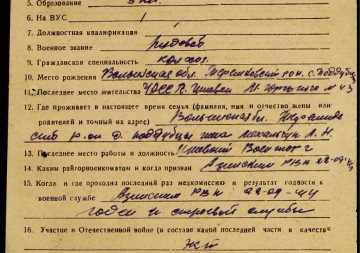 5. Образование 5 кл.
6. На ВУС /
7. Должностная квалификация
8. Военное звание рядовой
9. Гражданская специальность колхоз.
10. Место рождения Волынская обл. с. Поддубцы
11. Последнее место жительства УАССР. г. Ижевск М. Горького № 43
12. Где проживает в настоящее время семья (фамилия, имя и отчество жены или
родителей и точный их адрес) Волынская обл.
р-он д. Поддубцы жена Л. Н.
13. Последнее место работы и должность
14. Каким райгорвоенкоматом и когда призван Азинским РВК
15. Когда и где проходил последний раз медкомиссию и результат годности к
военной службе Азинским РВК 22-09-44
годен к строевой службы
16. Участие в Отечественной войне (в составе какой последней части в качестве
нет